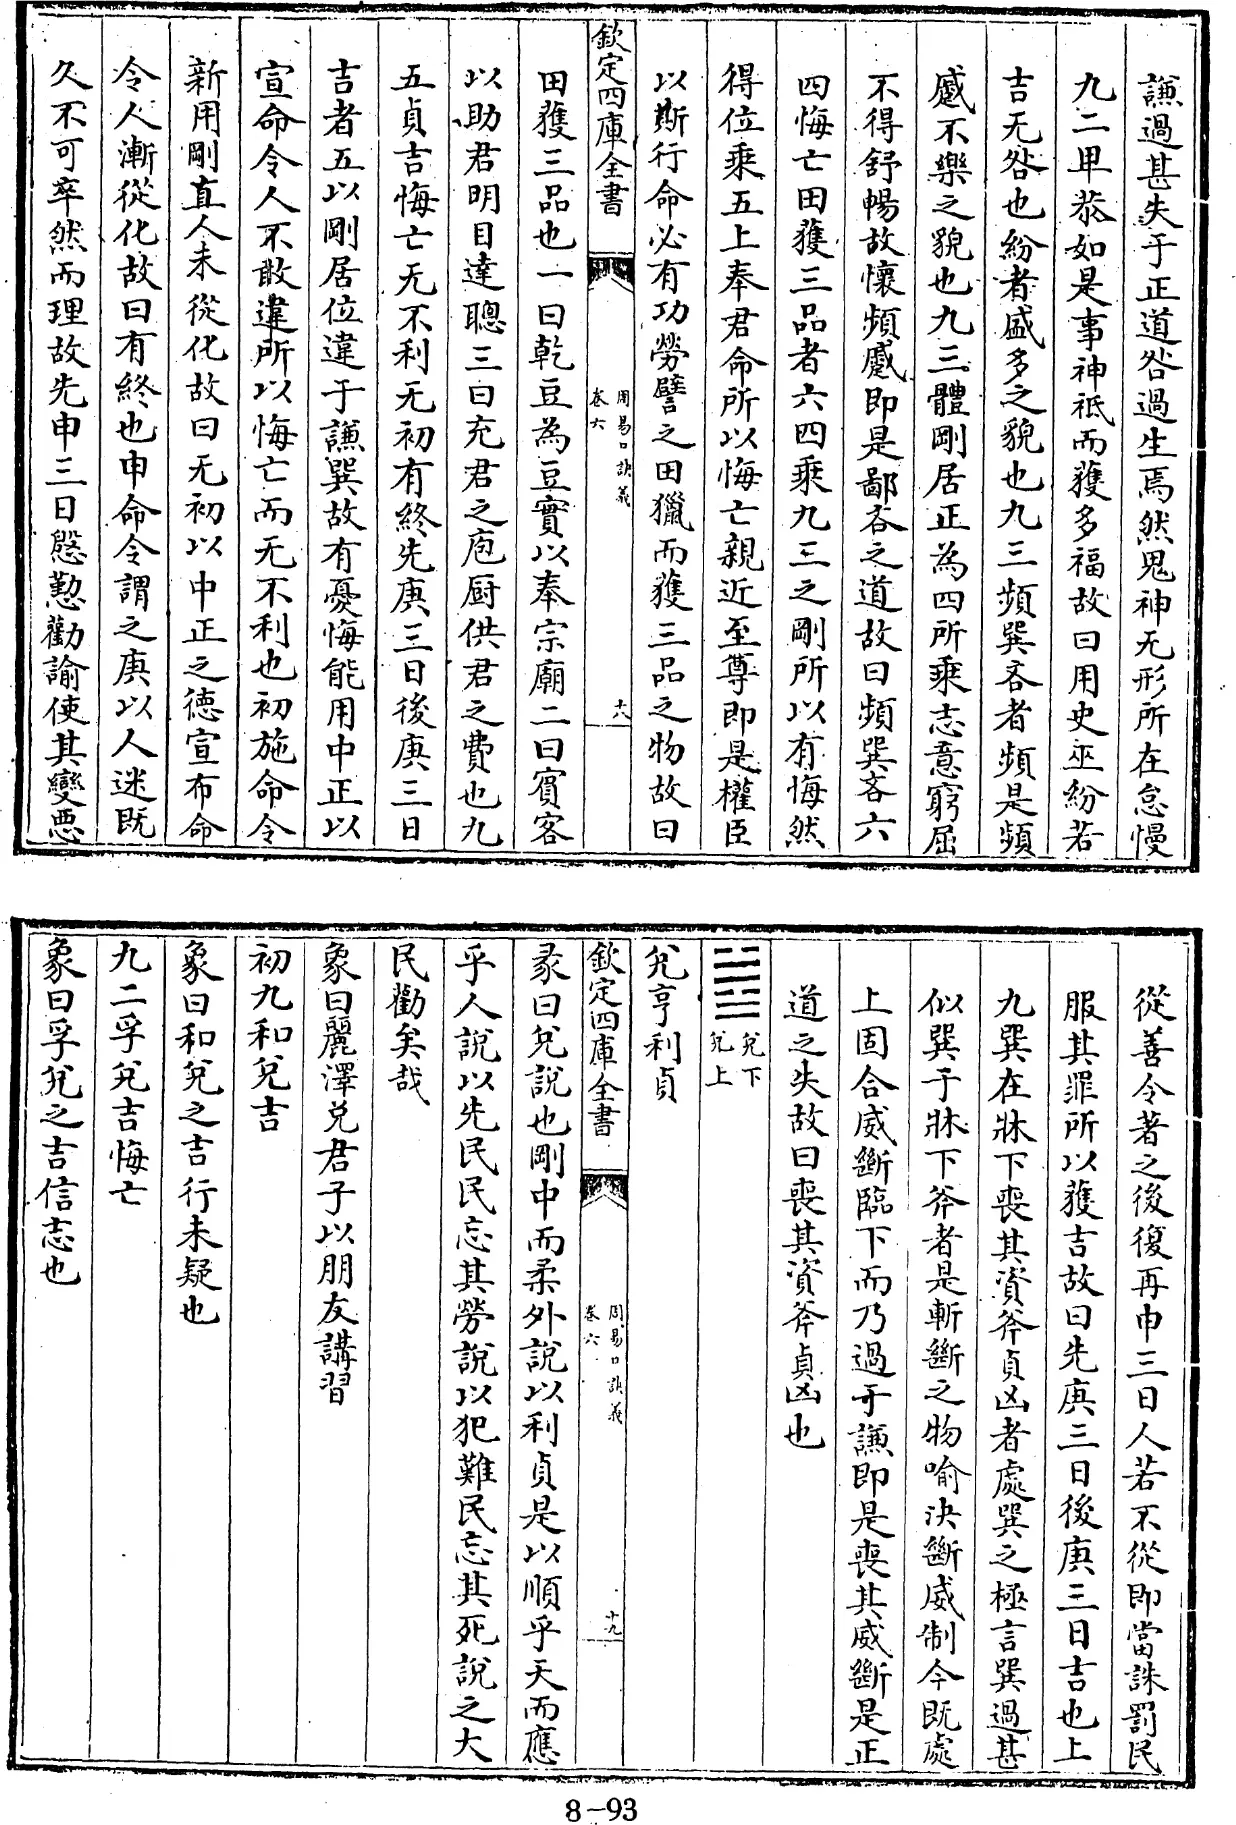 謙過甚失于正道咎過生焉然鬼神无形所在怠慢
九二卑恭如是事神祇而獲多福故曰用史巫紛若
吉无咎也紛者盛多之貌也九三頻巽吝者頻是頻
蹙不樂之貌也九三體剛居正為四所乘志意窮屈
不得舒暢故懷頻蹙即是鄙吝之道故曰頻巽吝六
四悔亡田獲三品者六四乘九三之剛所以有悔然
得位乘五上奉君命所以悔亡親近至尊即是權臣
以斯行命必有功勞譬之田獵而獲三品之物故曰
欽定四庫全書
周易口訣義
卷六
十八
田獲三品也一曰乾豆為豆實以奉宗廟二曰賓客
以助君明目達聰三曰充君之庖厨供君之費也九
五貞吉悔亡无不利无初有終先庚三日後庚三日
吉者五以剛居位違于謙巽故有憂悔能用中正以
宣命令人不敢違所以悔亡而无不利也初施命令
新用剛直人未從化故曰无初以中正之德宣布命
令人漸從化故曰有終也申命令謂之庚以人迷既
久不可卒然而理故先申三日慇懃勸諭使其變惡
從善令著之後復再申三日人若不從即當誅罰民
服其罪所以獲吉故曰先庚三日後庚三日吉也上
九巽在牀下喪其資斧貞凶者處巽之極言巽過甚
似巽于牀下斧者是斬斷之物喻決斷威制今既處
上固合威斷臨下而乃過于謙即是喪其威斷是正
道之失故曰喪其資斧貞凶也
兌下
兌上
兌亨利貞
欽定四庫全書
周易口訣義
卷六
十九
彖曰兌說也剛中而柔外說以利貞是以順乎天而應
乎人說以先民民忘其勞說以犯難民忘其死說之大
民勸矣哉
象曰麗澤兌君子以朋友講習
初九和兌吉
象曰和兌之吉行未疑也
九二孚兌吉悔亡
象曰孚兌之吉信志也
8-93